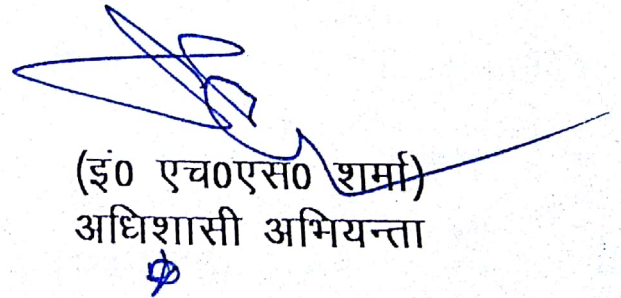 (इं0 एच0एस0 शर्मा)
अधिशासी अभियन्ता